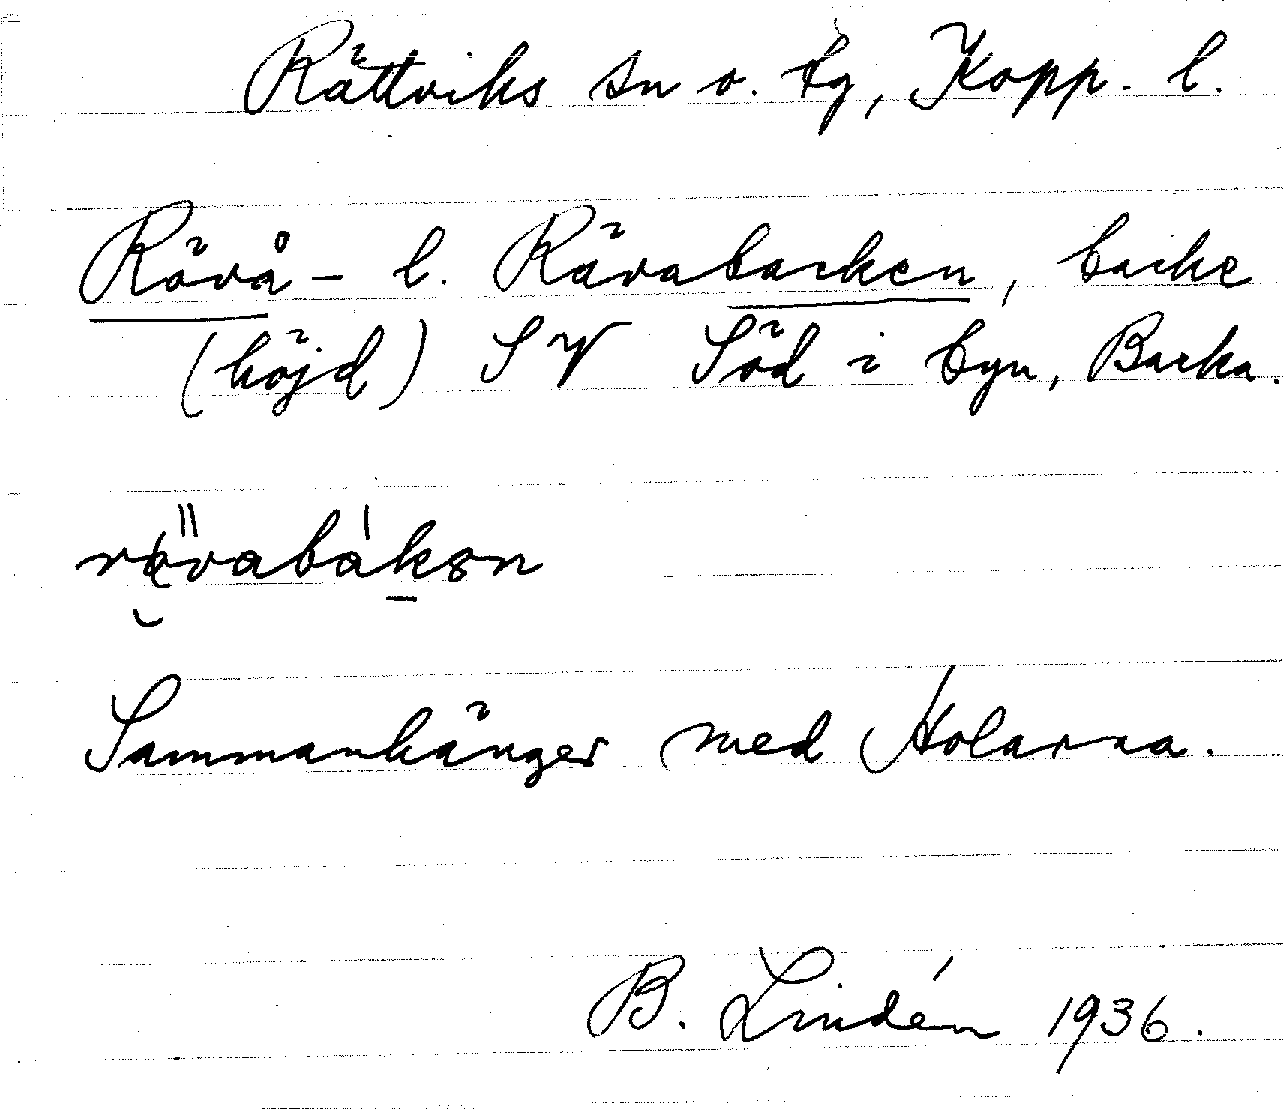 Rättviks sn o. tg, Kopp. l.
Rövå- l. Rävabacken, backe
(höjd) SV Söd i byn, Backa.
rövabàkən
Sammanhänger med Holarna.
B. Lindén 1936.